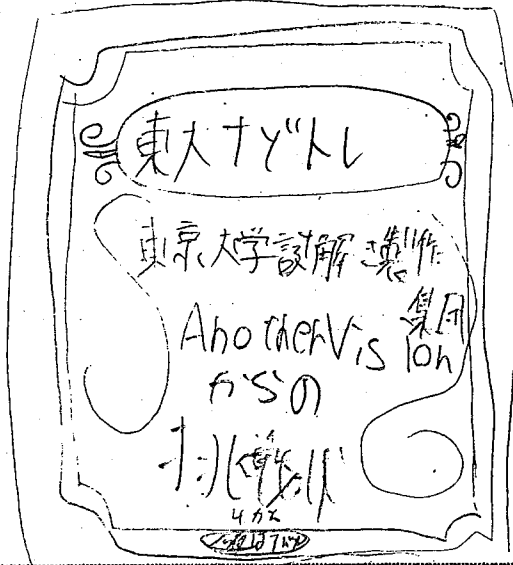 東大ナゾトレ
東京大学謎解き製作
集団
AnotherVision
からの
挑戦状